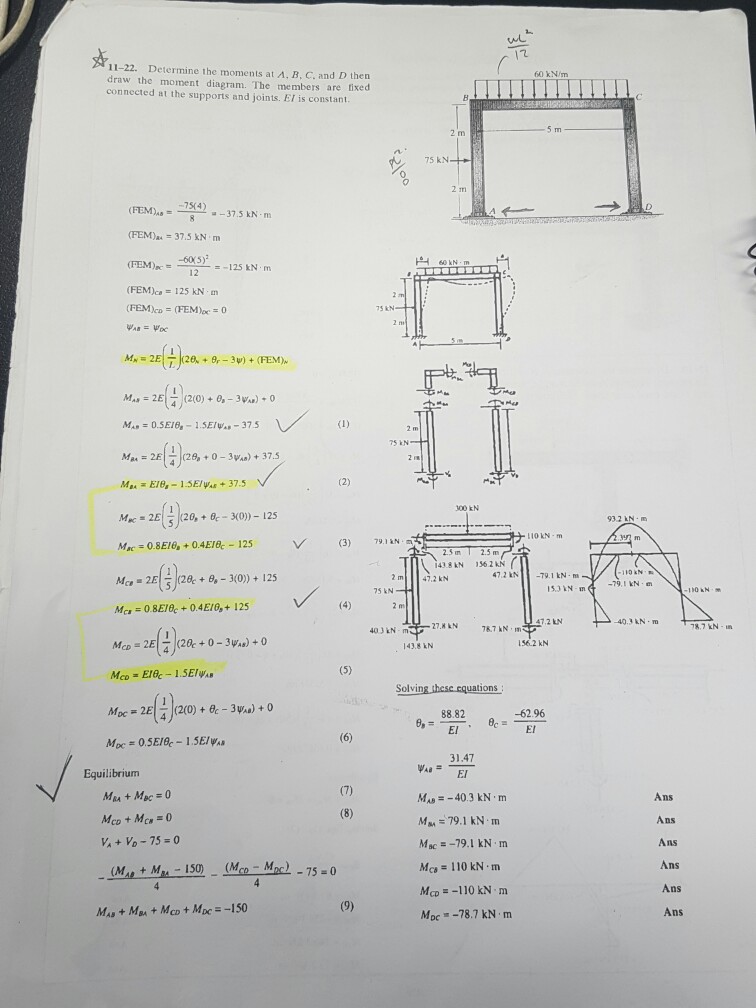 wL²
12
☆11–22. Determine the moments at A, B, C, and D then
draw the moment diagram. The members are fixed
connected at the supports and joints. EI is constant.
60 kN/m
B
C
2 m
5 m
75 kN
2 m
A
D
(FEM)AB = −75(4)/8 = −37.5 kN · m
(FEM)BA = 37.5 kN · m
(FEM)BC = −60(5)²/12 = −125 kN · m
(FEM)CB = 125 kN · m
(FEM)CD = (FEM)DC = 0
ψAB = ψDC
MN = 2E(I/L)(2θN + θF − 3ψ) + (FEM)N
MAB = 2E(I/4)(2(0) + θB − 3ψAB) + 0
MAB = 0.5EIθB − 1.5EIψAB − 37.5 ✓ (1)
MBA = 2E(I/4)(2θB + 0 − 3ψAB) + 37.5
MBA = EIθB − 1.5EIψAB + 37.5 ✓ (2)
MBC = 2E(I/5)(2θB + θC − 3(0)) − 125
MBC = 0.8EIθB + 0.4EIθC − 125 ✓ (3)
MCB = 2E(I/5)(2θC + θB − 3(0)) + 125
MCB = 0.8EIθC + 0.4EIθB + 125 ✓ (4)
MCD = 2E(I/4)(2θC + 0 − 3ψAB) + 0
MCD = EIθC − 1.5EIψAB (5)
MDC = 2E(I/4)(2(0) + θC − 3ψAB) + 0
MDC = 0.5EIθC − 1.5EIψAB (6)
✓ Equilibrium
MBA + MBC = 0 (7)
MCD + MCB = 0 (8)
VA + VD − 75 = 0
−(MAB + MBA − 150)/4 − (MCD − MDC)/4 − 75 = 0
MAB + MBA + MCD + MDC = −150 (9)
60 kN · m
2 m
75 kN
2 m
5 m
A
2 m
75 kN
2 m
300 kN
79.1 kN · m
110 kN · m
2.5 m
2.5 m
143.8 kN
156.2 kN
47.2 kN
47.2 kN
2 m
75 kN
2 m
40.3 kN · m
27.8 kN
143.8 kN
78.7 kN · m
47.2 kN
156.2 kN
93.2 kN · m
2.397 m
−79.1 kN · m
−110 kN · m
−79.1 kN · m
15.3 kN · m
−110 kN · m
−40.3 kN · m
78.7 kN · m
Solving these equations :
θB = 88.82/EI , θC = −62.96/EI
ψAB = 31.47/EI
MAB = −40.3 kN · m Ans
MBA = 79.1 kN · m Ans
MBC = −79.1 kN · m Ans
MCB = 110 kN · m Ans
MCD = −110 kN · m Ans
MDC = −78.7 kN · m Ans